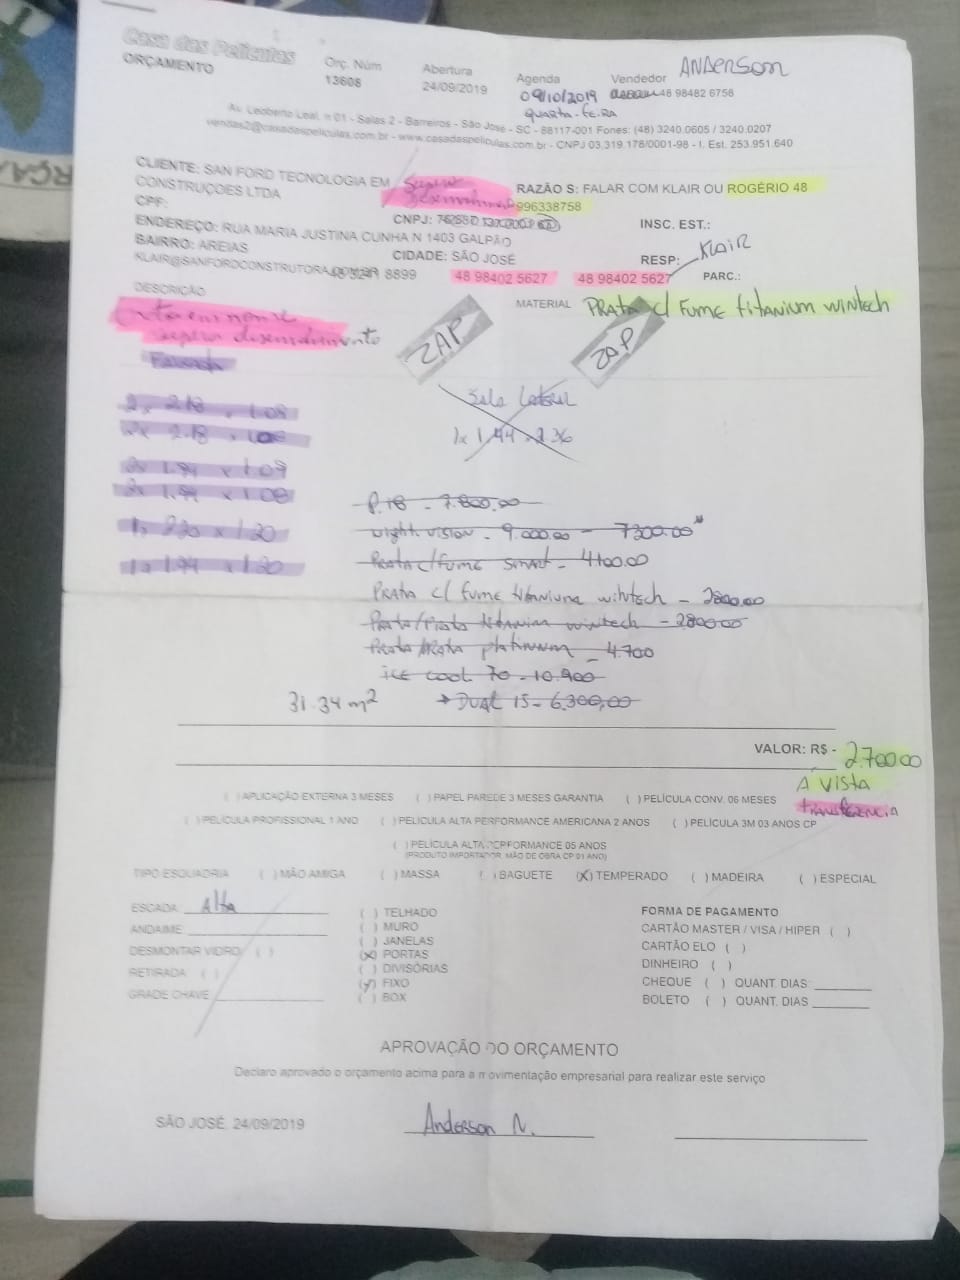 Casa das Películas
ORÇAMENTO
Orç. Núm
13608
Abertura
24/09/2019
Agenda
09/10/2019
QUARTA-FEIRA
Vendedor ANDERSON
48 98482 6758
Av. Leoberto Leal, n 01 - Salas 2 - Barreiros - São José - SC - 88117-001 Fones: (48) 3240.0605 / 3240.0207
vendas2@casadaspeliculas.com.br - www.casadaspeliculas.com.br - CNPJ 03.319.178/0001-98 - I. Est. 253.951.640
CLIENTE: SAN FORD TECNOLOGIA EM
CONSTRUÇOES LTDA
RAZÃO S: FALAR COM KLAIR OU ROGÉRIO 48
996338758
CPF:
CNPJ:
INSC. EST.:
ENDEREÇO: RUA MARIA JUSTINA CUNHA N 1403 GALPÃO
BAIRRO: AREIAS
CIDADE: SÃO JOSÉ
RESP: KLAIR
KLAIR@SANFORDCONSTRUTORA.COM.BR
8899
48 98402 5627
48 98402 5627
PARC.:
DESCRIÇÃO
MATERIAL PRATA c/ FUME titANIUM WiNtECH
desenvolvimento
Fachada
ZAP
ZAP
2 x 2.18 x 1.09
2x 2.18 x 1.08
2x 1.94 x 1.09
2x 1.94 x 1.08
1x 2.30 x 1.20
1x 1.94 x 1.20
Sala Lateral
1x 1,44 x 2.36
P.18 - 7.800,00
Night Vision - 9.000.00 - 7200.00
PRATA c/ FUME SMART - 4100.00
PRATA c/ FUME titANiUm WiNtech - 2800.00
PRATA/PRATA titANium WiNtech - 2800.00
PRATA/PRATA platinum - 4.700
iCE COOL 70 - 10.900
31.34 m²
DUAL 15 - 6.300,00
VALOR: R$ - 2.700.00
À VISTA
tRANSFERENCIA
( ) APLICAÇÃO EXTERNA 3 MESES ( ) PAPEL PAREDE 3 MESES GARANTIA ( ) PELÍCULA CONV. 06 MESES
( ) PELÍCULA PROFISSIONAL 1 ANO ( ) PELÍCULA ALTA PERFORMANCE AMERICANA 2 ANOS ( ) PELÍCULA 3M 03 ANOS CP
( ) PELÍCULA ALTA PERFORMANCE 05 ANOS
(PRODUTO IMPORTADOR, MÃO DE OBRA CP 01 ANO)
TIPO ESQUADRIA ( ) MÃO AMIGA ( ) MASSA ( ) BAGUETE (X) TEMPERADO ( ) MADEIRA ( ) ESPECIAL
ESCADA Alta
ANDAIME
DESMONTAR VIDRO ( )
RETIRADA ( )
GRADE CHAVE
( ) TELHADO
( ) MURO
( ) JANELAS
(X) PORTAS
( ) DIVISÓRIAS
(X) FIXO
( ) BOX
FORMA DE PAGAMENTO
CARTÃO MASTER / VISA / HIPER ( )
CARTÃO ELO ( )
DINHEIRO ( )
CHEQUE ( ) QUANT. DIAS
BOLETO ( ) QUANT. DIAS
APROVAÇÃO DO ORÇAMENTO
Declaro aprovado o orçamento acima para a movimentação empresarial para realizar este serviço
SÃO JOSÉ, 24/09/2019
Anderson N.